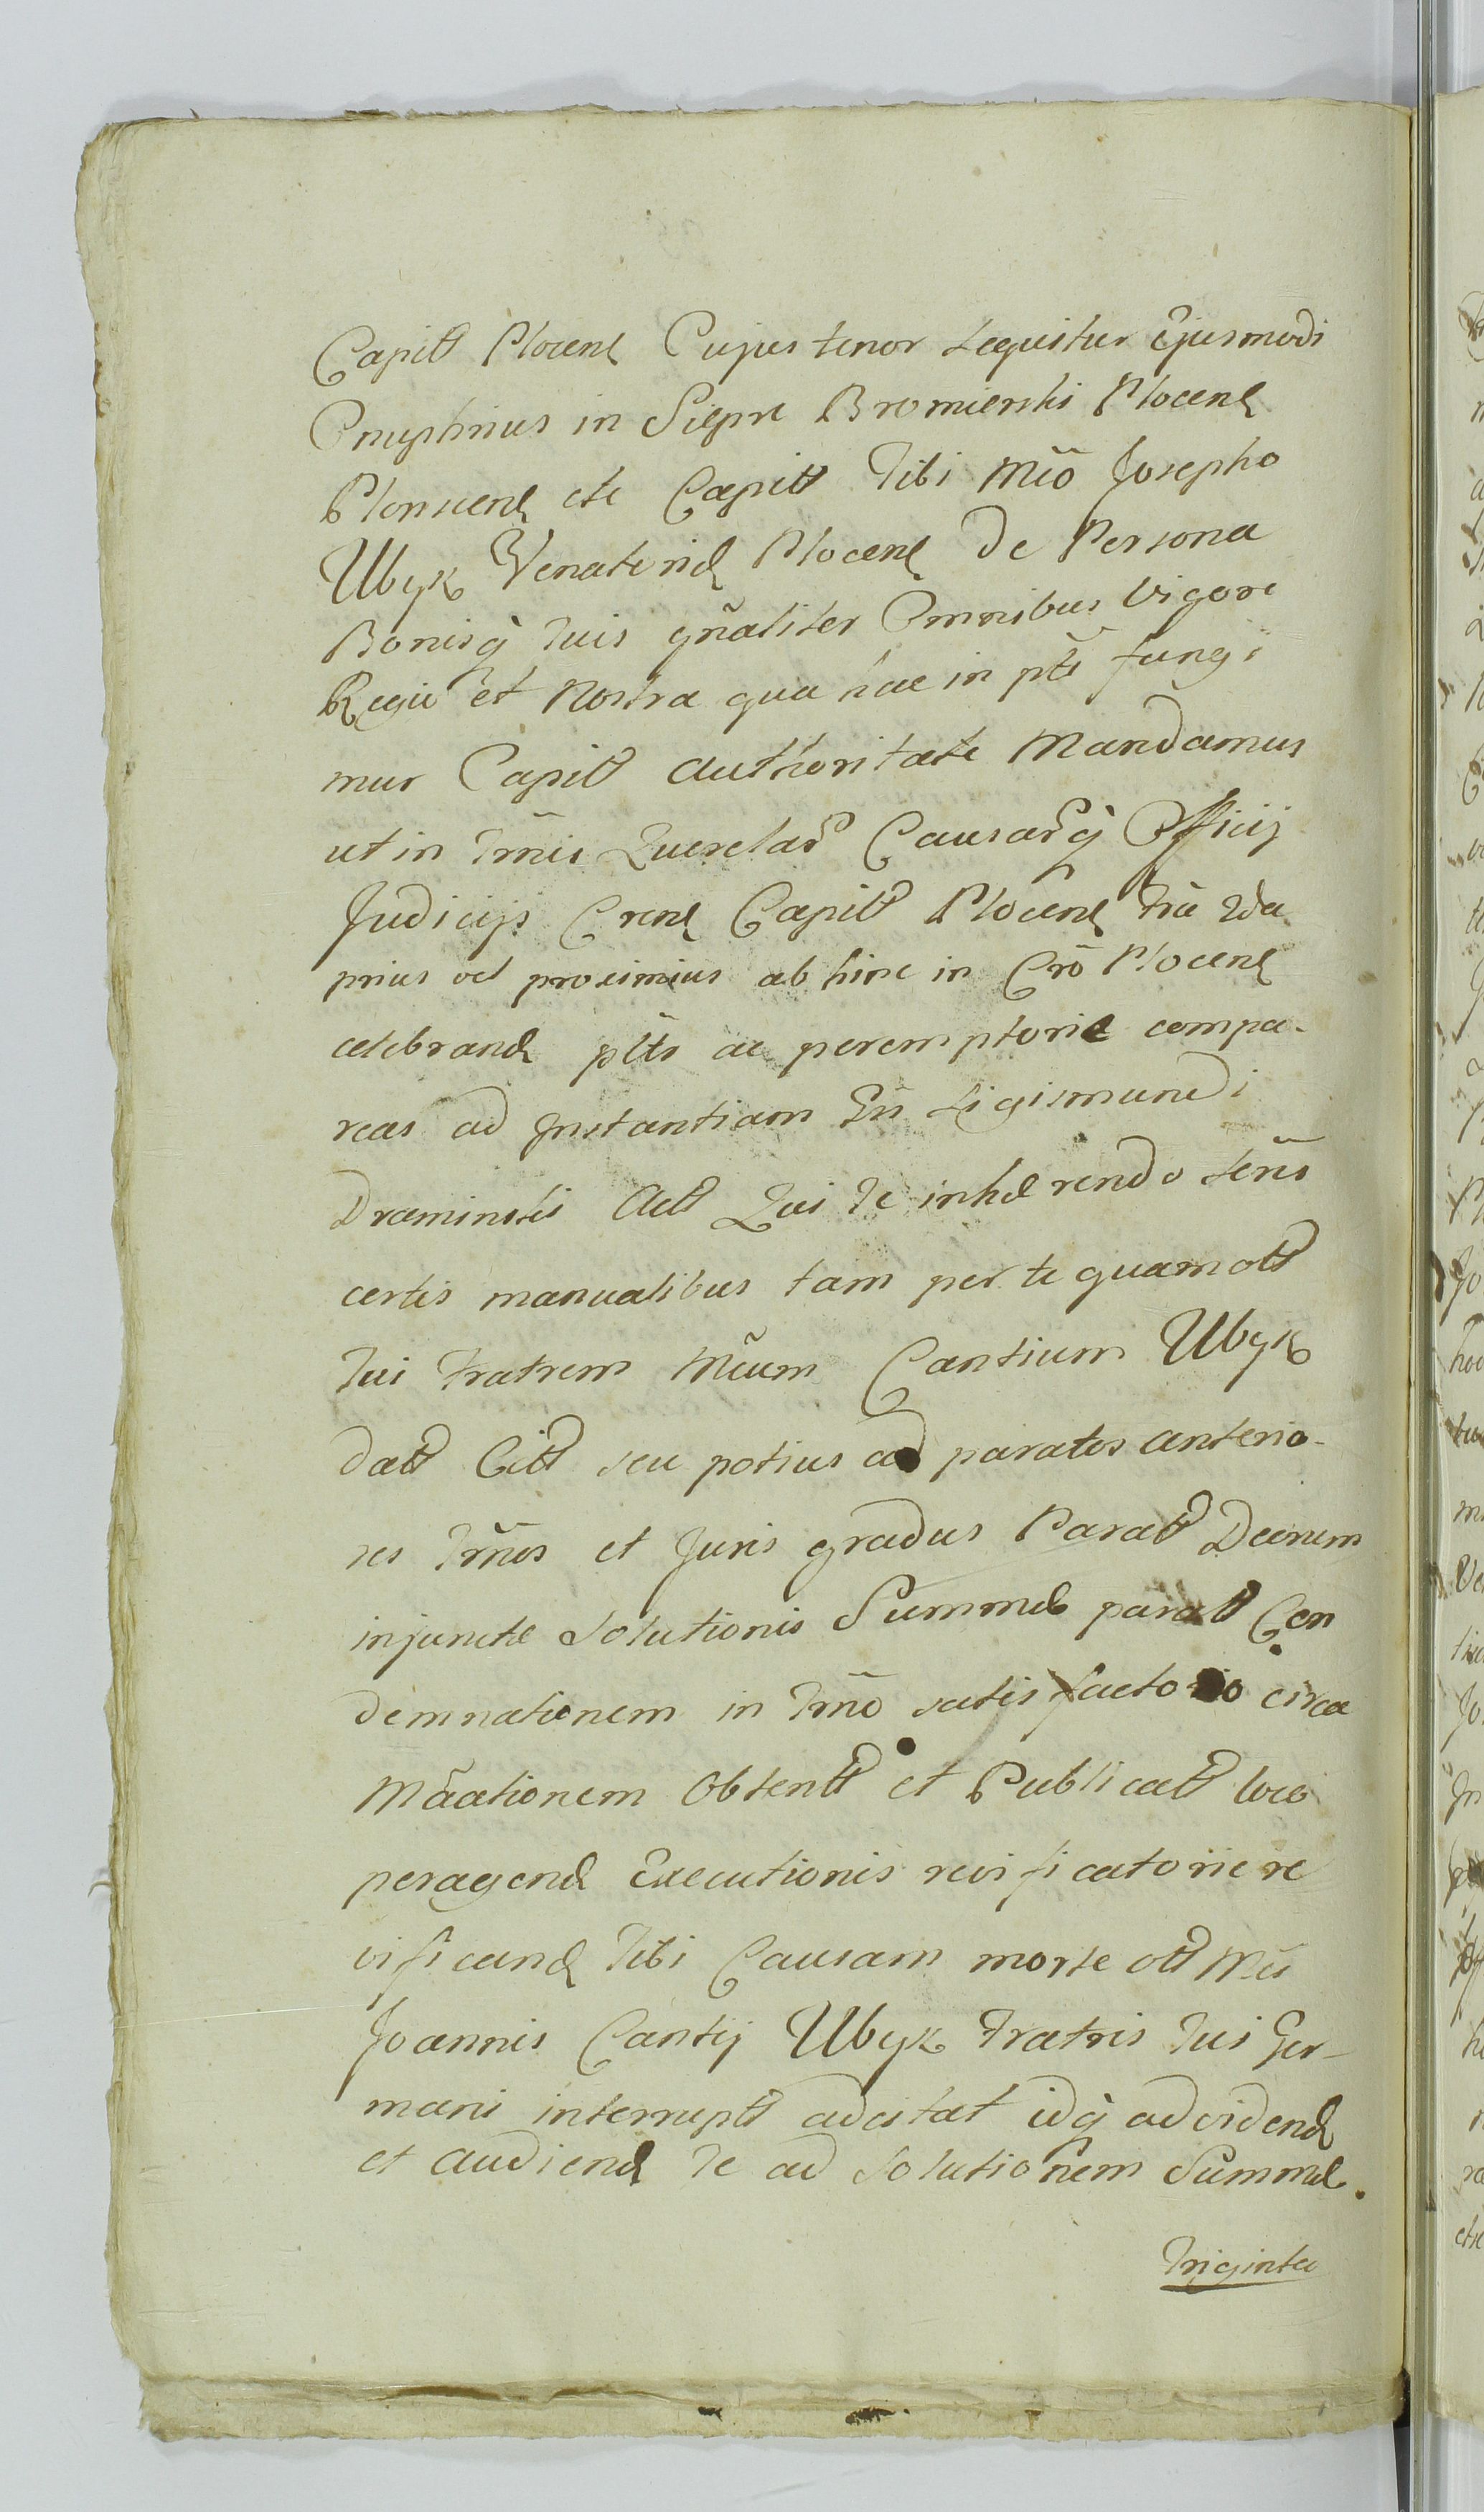 Capitt Plocens Cujus tenor sequitur Ejusmodi
Onuphrius in Sieprc Bromierski Plocens
Plonscens etc Capitt Tibi Mco Josepho
Ubysz Venatorid Plocens De Persona
Bonisq tuis gñaliter Omnibus vigore
Regia et Nostra qua hac in pte fungi
mur Capitt authoritate Mandamus
ut in Tmis Querelar Causarq Officij
Judicijs Crens Capitt Plocens fria 2da
prius vel proximius ab hinc in Cro Plocens
celebrand pltr ac peremptorie compa-
reas ad Instantiam Gñ Sigismundi
Draminski Actt Qui Te inhærendo
certis manualibus tam per te quam ott
Tui Fratrem Mcum Cantium Ubysz
datt Citt seu potius ad paratos anterio-
res Tmos et Juris gradus Paratt Decrum
injunctæ Solutionis Summæ paratt Con
demnationem in Tmo satisfactorio circa
Mãationem Obtentt et Publicatt loco
peragend Executionis reificatorie re
ificand Tibi Causam morte ott Mci
Joannis Cantij Ubysz Fratris Tui Ger-
mani interruptt adcitat idq ad vidend
et audiend Te ad Solutionem Summæ
Triginta